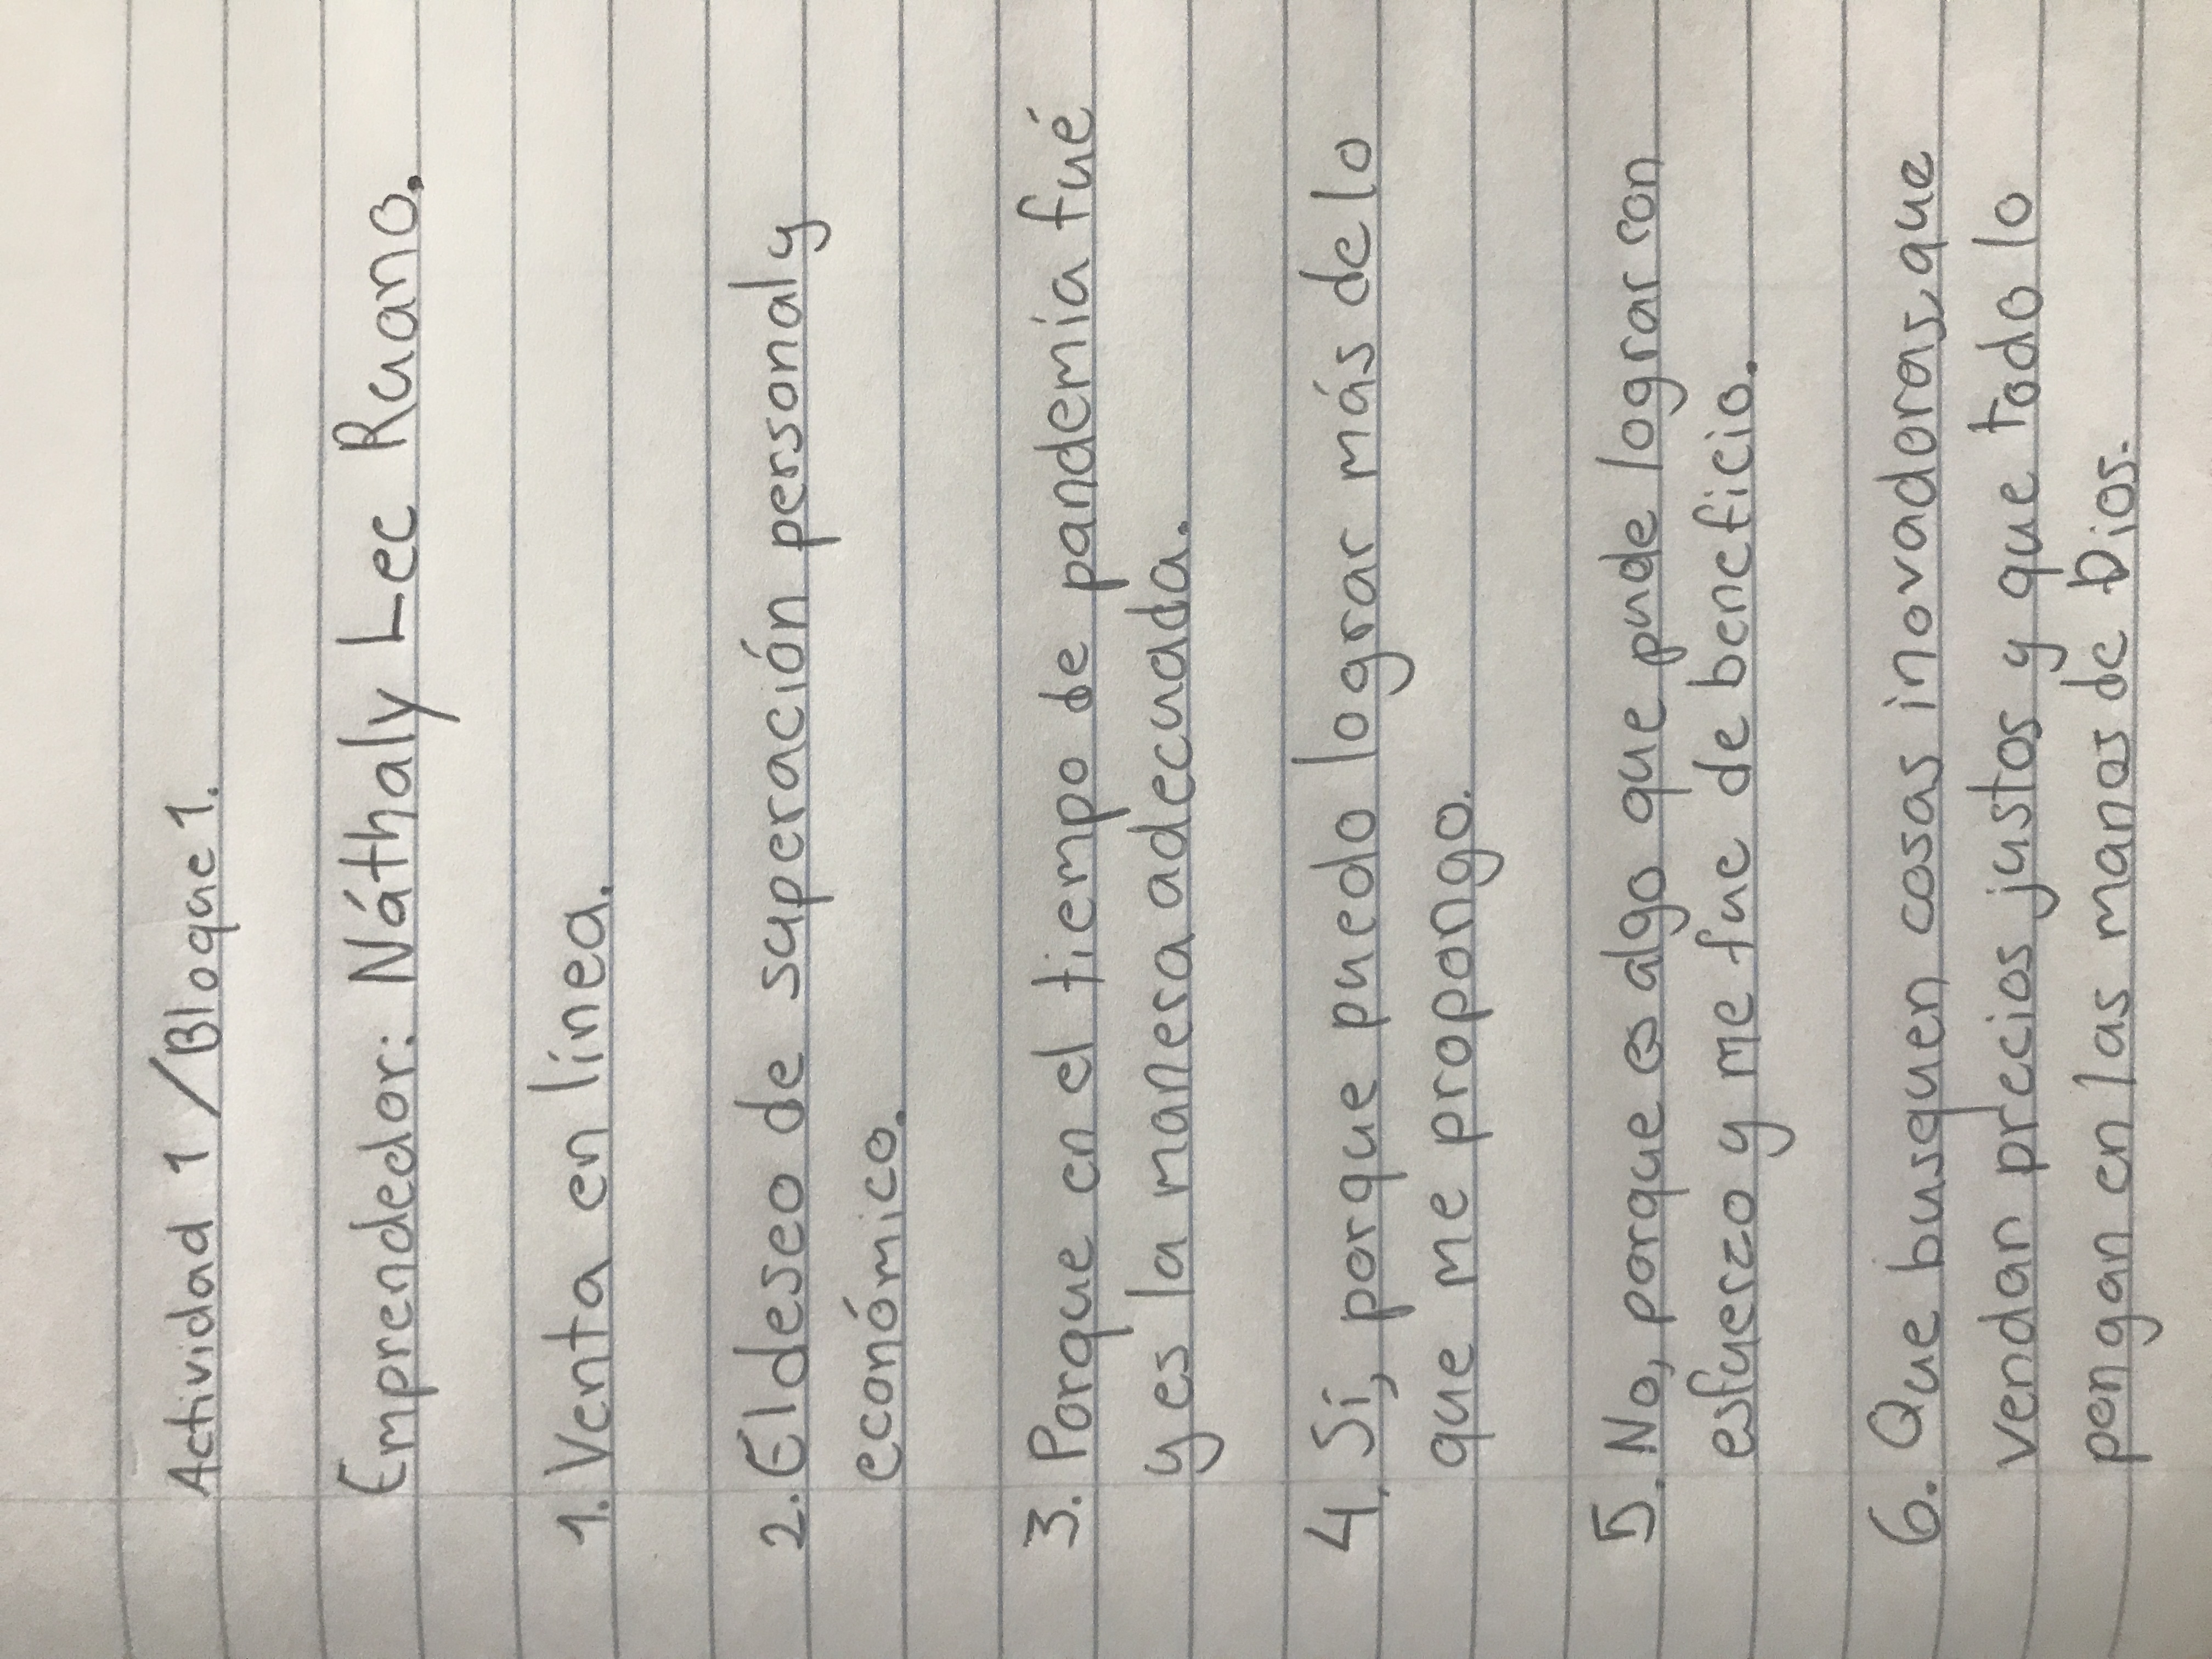 Actividad 1 / Bloque 1.
Emprendedor: Náthaly Lec Ruano.
1. Venta en línea.
2. El deseo de superación personal y
económico.
3. Porque en el tiempo de pandemia fué
y es la manera adecuada.
4. Sí, porque puedo lograr más de lo
que me propongo.
5. No, porque es algo que pude lograr con
esfuerzo y me fue de beneficio.
6. Que busquen cosas inovadoras, que
vendan precios justos y que todo lo
pongan en las manos de Dios.